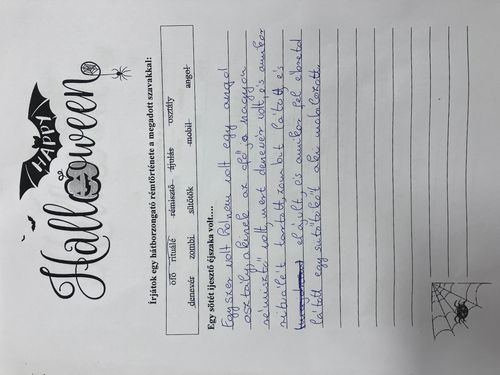 HAPPY
Halloween
Írjátok egy hátborzongató rémtörténete a megadott szavakkal:
ofő rituálé rémisztő ájulás osztály
denevér zombi sütőtök mobil angol
Egy sötét ijesztő éjszaka volt....
Egyszer volt hol nem volt egy angol
osztály, akinek az ofője nagyon
rémisztő volt, mert denevér volt, és amikor
rituálét tartott, zombit látott, és
elájult, és amikor fel ébredt
látott egy sütőtököt aki mobilozott.